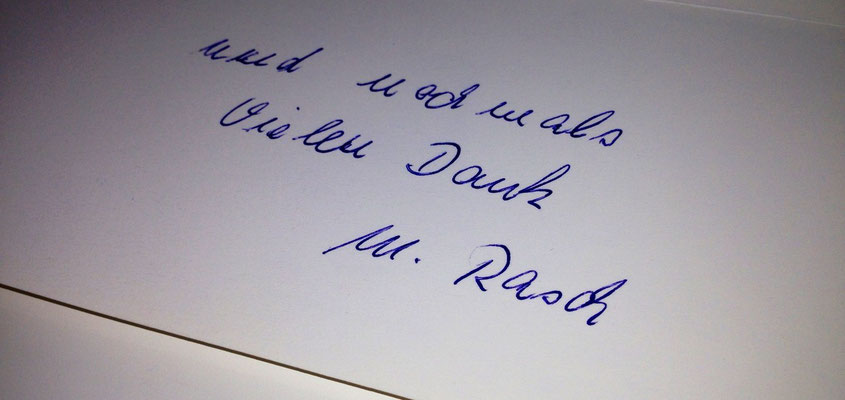 und nochmals
Vielen Dank
M. Rasch